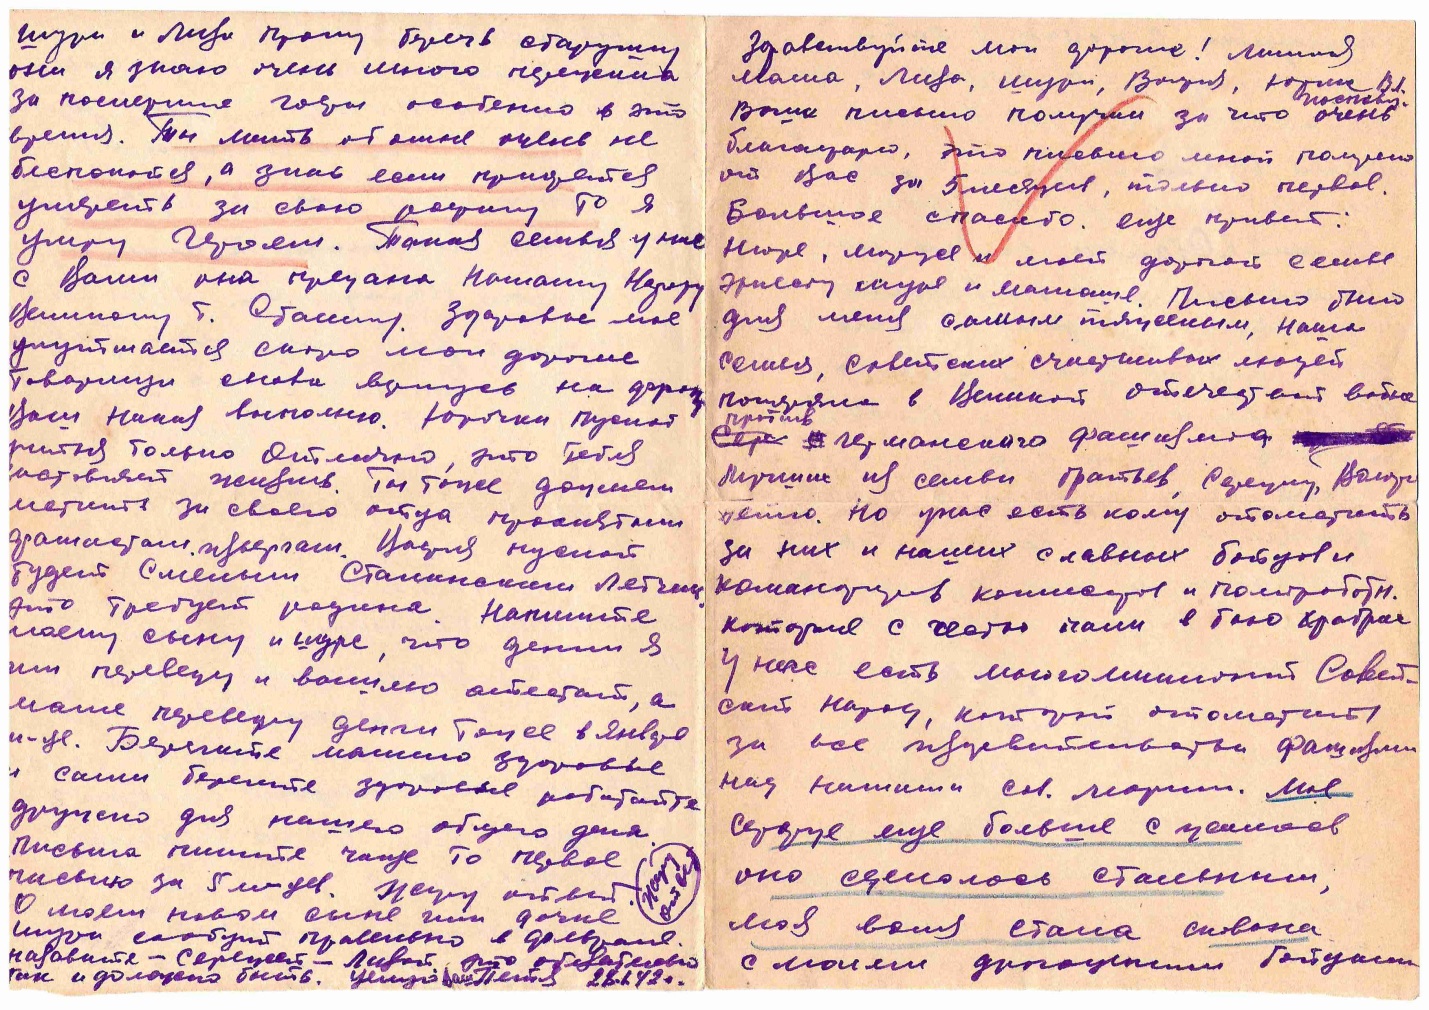 Здравствуйте мои дорогие! Милая
мама, Лиза, Шура, Вакуля, Юрик Вл.
Ваше письмо получил за что очень
благодарю, это письмо мной получено
от Вас за 5 месяцев, только первое.
Большое спасибо. еще привет:
Нюре, Марусе и моей дорогой семье
Эрнесту Шуре и мамаше. Письмо было
для меня самым тяжелым, наша
семья, советских счастливых людей
потеряла в Великой отечествен войне
против
германского фашизма
лучших из семьи братьев, Сережу,
Но у нас есть кому отомстить
за них и наших славных бойцов и
командиров комиссаров и политработн.
которые с честью пали в бою храбрых
У нас есть многомиллионный Совет-
ский Народ, который отомстит
за все издевательства фашизма
над нашими сов. людьми. Мое
сердце еще больше
оно сделалось стальным,
моя воля стала
с моими драгоценными бойцами
Шура и Лиза прошу беречь старушку
она я знаю очень много пережила
за последние годы особенно в это
время. Ты мать обо мне очень не
беспокойся, а знай если придется
умереть за свою родину то я
умру Героем. Такая семья у нас
с Вами она предана Нашему Народу
Великому т. Сталину. Здоровье мое
улучшается скоро мои дорогие
товарищи снова вернусь на фронт
Ваш наказ выполню. Юрочка пускай
учится только Отлично, это тебя
заставляет жизнь. Ты тоже должен
мстить за своего отца проклятым
фашистам извергам. пускай
будет Смелым Сталинским Летчик.
это требует родина. Напишите
моему сыну и Шуре, что деньги я
им переведу и вышлю аттестат, а
маме переведу деньги тоже в январе
м-це. Берегите мамино здоровье
и сами берегите здоровье работайте
дружно для нашего общего дела.
Письма пишите чаще то первое
письмо за 5 м-цев. Жду ответ.
Жду ответ
О моем новом сыне или дочке
Шура сообщит правильно в феврале.
назовите – Сергеем – Лизой это обязательно
так и должно быть. Целую Ваш Петя 22.1.42 г.